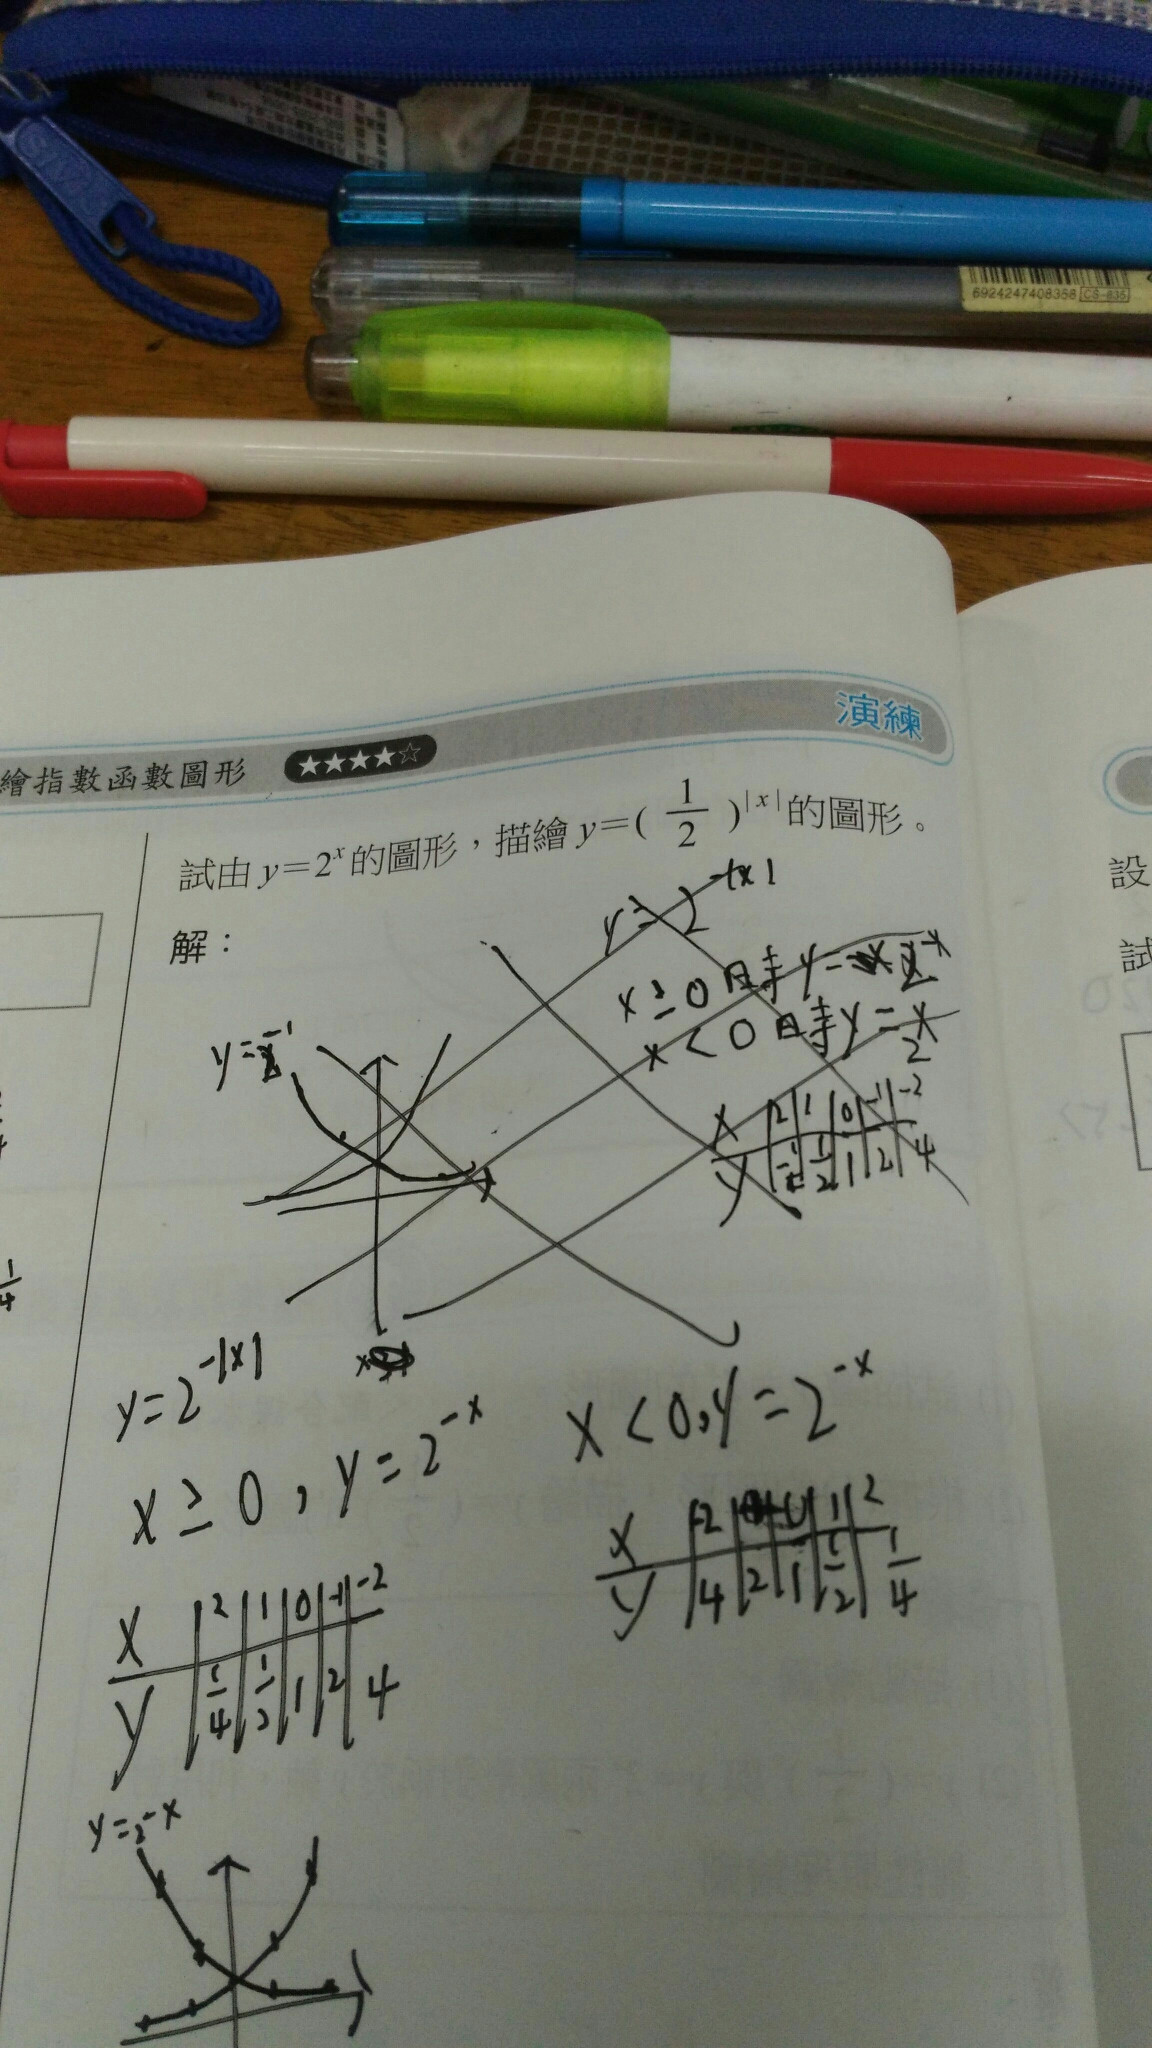 SIMBA
6924247408358 CS-835
演練
繪指數函數圖形 ★★★★☆
試由y=2^x的圖形，描繪y=(1/2)^|x|的圖形。
解：
y=2^-|x|
x≥0時y=2^-x
x<0時y=2^x
x 2 1 0 -1 -2
y 1/4 1/2 1 2 4
y=2^-|x|
x≥0,y=2^-x
x<0,y=2^-x
x 2 1 0 -1 -2
y 1/4 1/2 1 2 4
x -2 0 1 2
y 4 2 1 1/2 1/4
y=2^-x
設
試
1/4